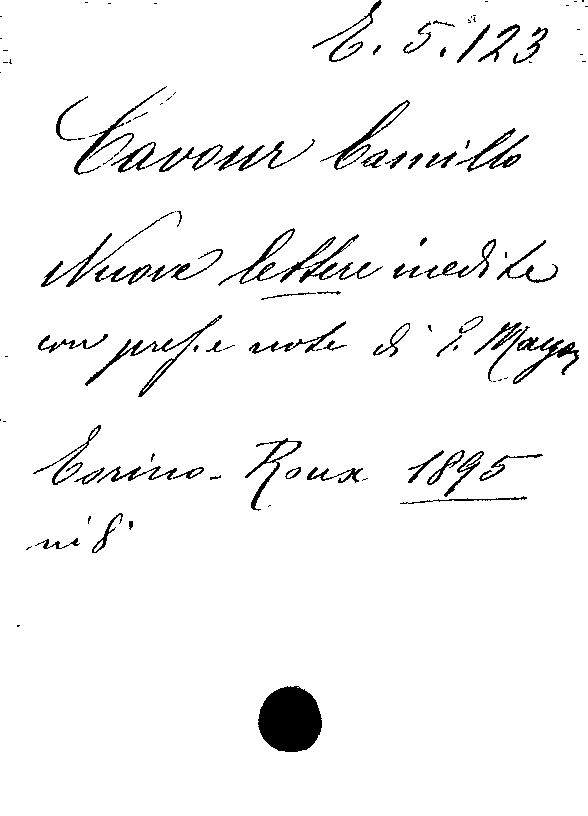 E. 5. 123
Cavour Camillo
Nuove lettere inedite
con pref. e note di E. Mayor
Torino - Roux 1895
in 8°